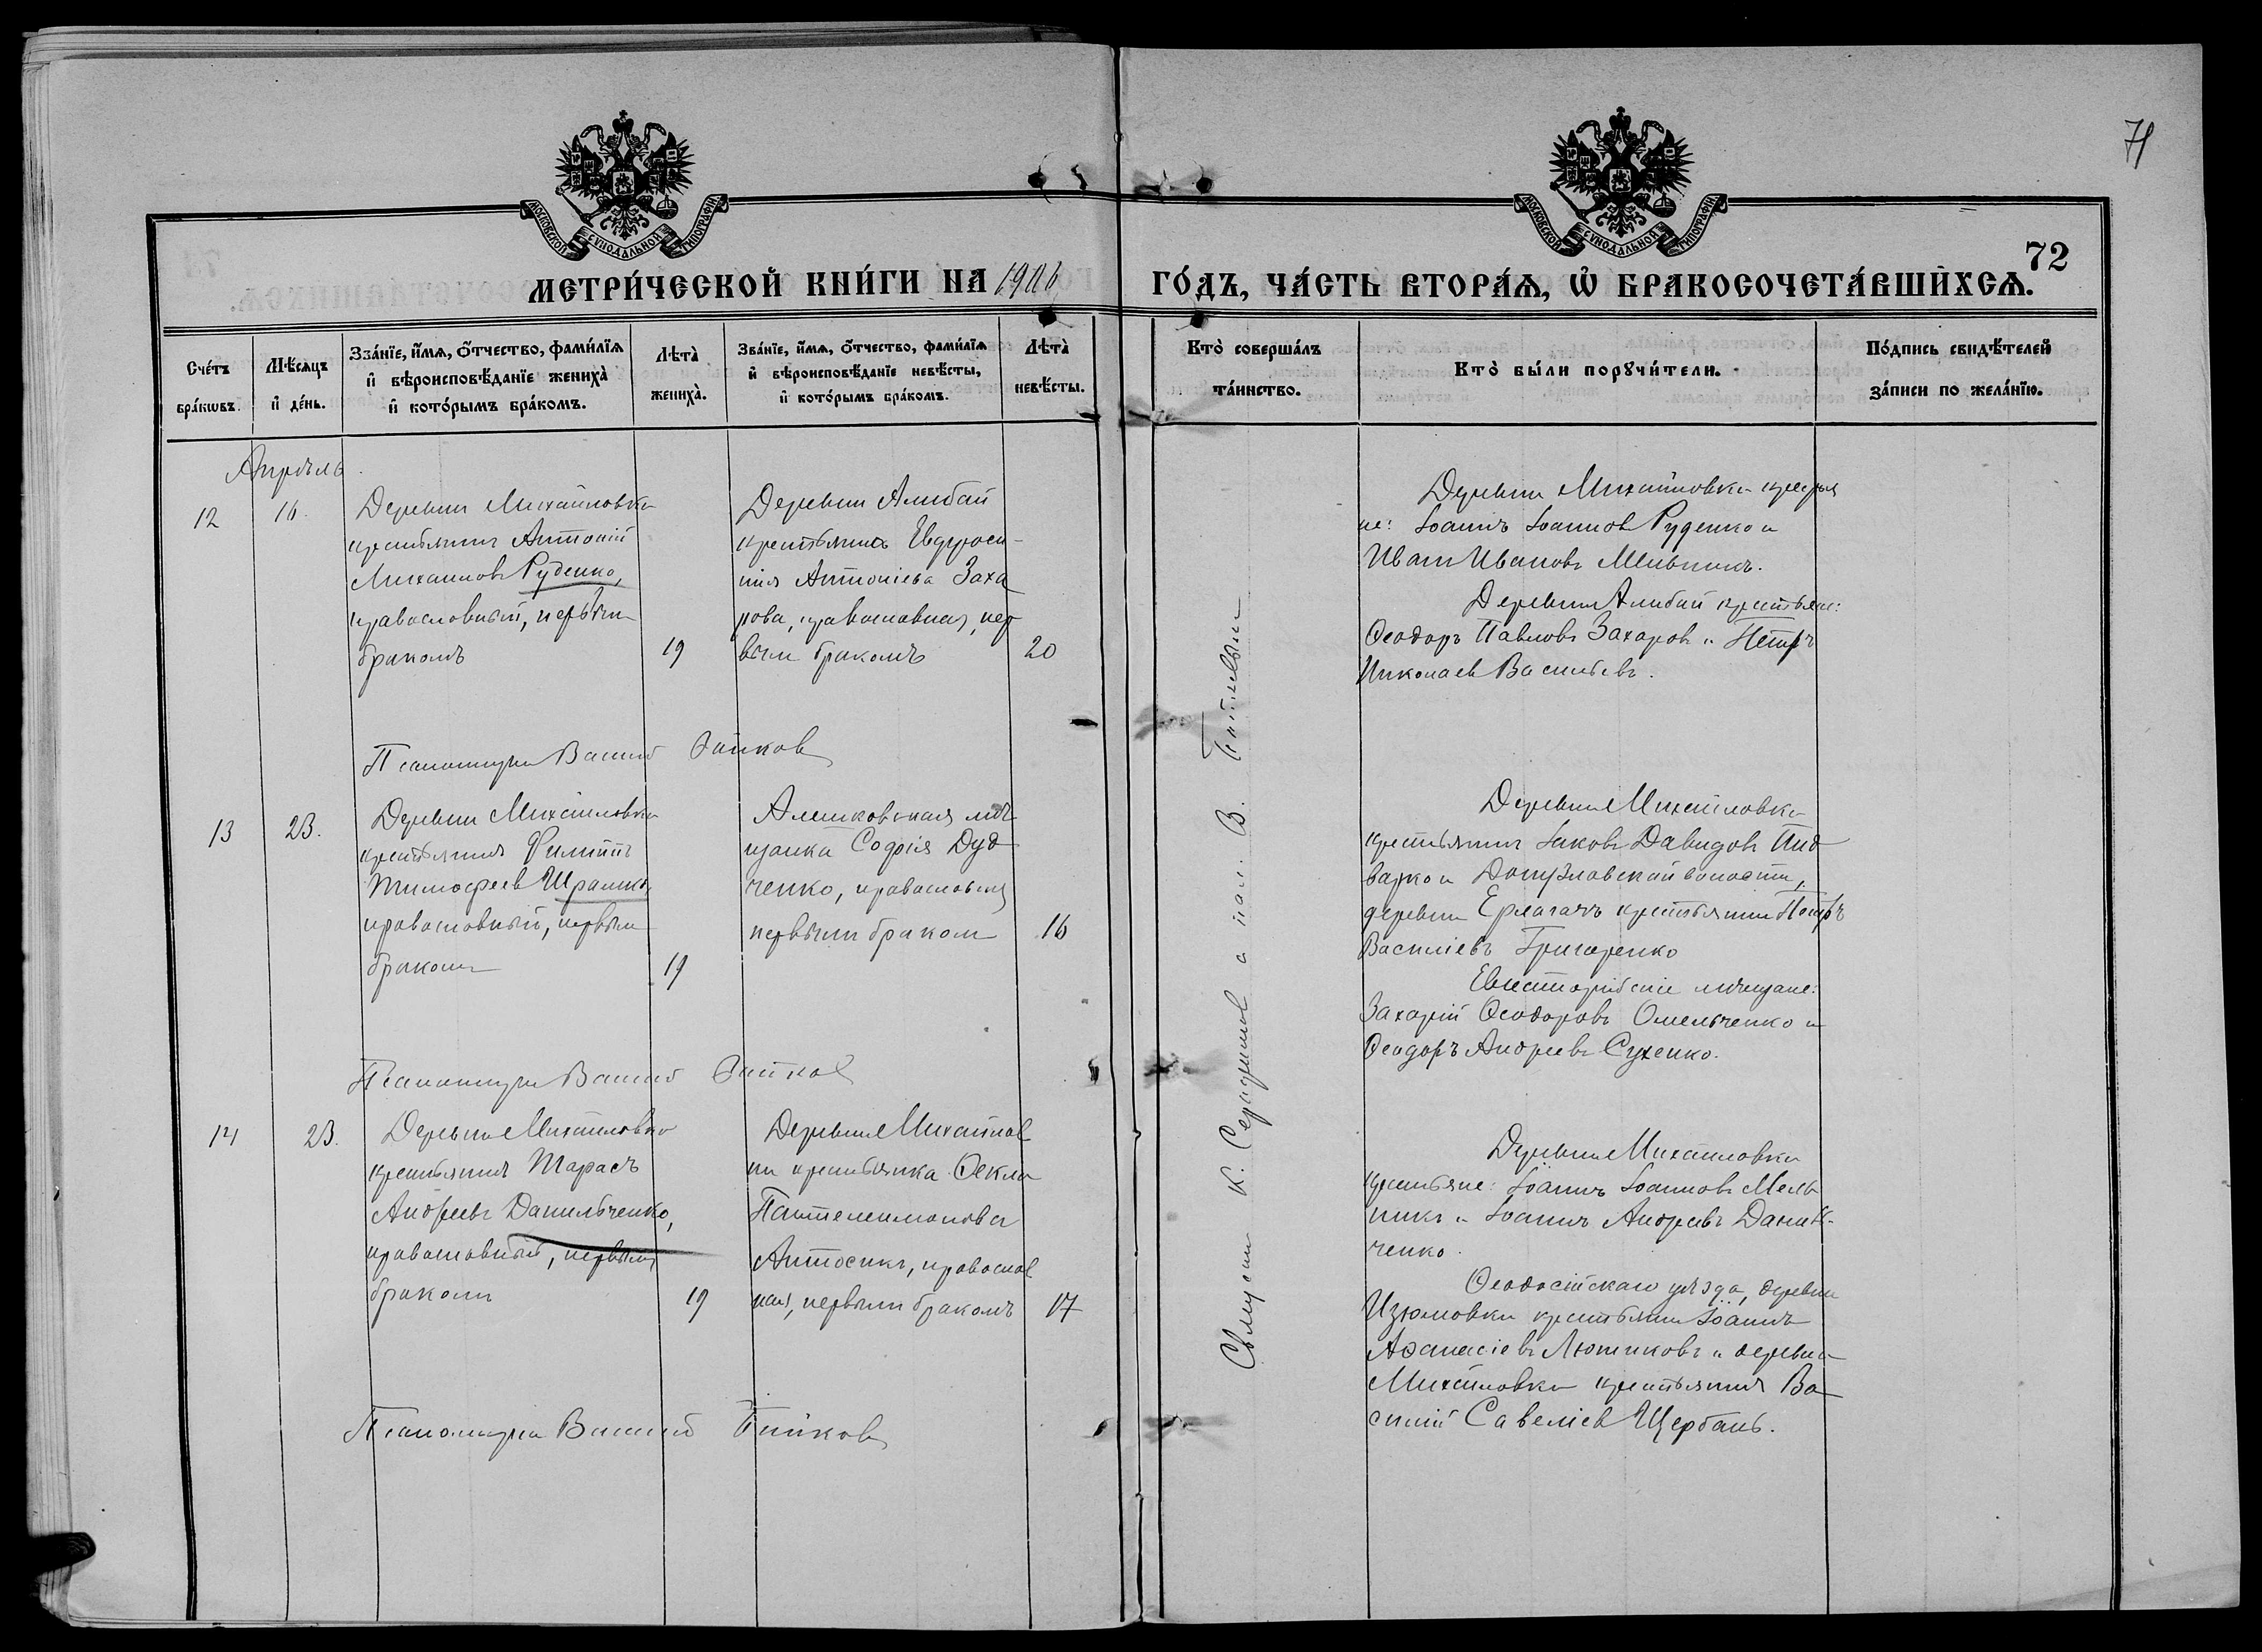 71
МОСКОВСКОЙ СУНОДАЛЬНОЙ ТИПОГРАФІИ
МОСКОВСКОЙ СУНОДАЛЬНОЙ ТИПОГРАФІИ
72
МЕТРИ́ЧЕСКОЙ КНИ́ГИ НА 1906 ГО́ДЪ, ЧА́СТЬ ВТОРА́Ѧ, Ѽ БРАКОСОЧЕТА́ВШИХСѦ.
Сче́тъ
бра́кѡвъ.
Мѣ́сѧцъ
и҆ де́нь.
Зва́нїе, и҆́мѧ, о҆́тчество, фами́лїѧ
и҆ вѣроисповѣ́данїе жениха̀
и҆ кото́рымъ бра́комъ.
Лѣта̀
жениха̀.
Зва́нїе, и҆́мѧ, о҆́тчество, фами́лїѧ
и҆ вѣроисповѣ́данїе невѣ́сты,
и҆ кото́рымъ бра́комъ.
Лѣта̀
невѣ́сты.
Кто̀ соверша́лъ
та́инство.
Кто̀ бы́ли порꙋчи́тели.
По́дпись свидѣ́телей
за́писи по жела́нїю.
Апрѣль
12
16.
Деревни Михайловки
крестьянин Антоній
Михаилов Руденко,
православный, первым
браком
19
Деревни Алибай
крестьянка Евфроси-
нія Антоніева Заха
рова, православная, пер
вым браком
20
Деревни Михайловки крестья
не: Іоанн Іоаннов Руденко и
Иван Иванов Мельник.
Деревни Алибай крестьяне:
Ѳеодоръ Павловъ Захаров и Петръ
Николаев Васильевъ.
Псаломщик Василій
13
23.
Деревни Михайловки
крестьянин Филиппъ
Тимофеев Шрамко,
православный, первым
браком
19
Алешковская мѣ
щанка Софія Дуд
ченко, православная
первым браком
16
Деревни Михайловки
крестьянин Іаковъ Давидов
и Донузлавской волости,
деревни крестьянин Петръ
Василіевъ Григоренко
Евпаторійскіе мѣщане:
Захарій Ѳеодоровъ Омельченко и
Ѳеодоръ Андреевъ Сухенко.
Псаломщик Василій
14
23.
Деревни Михайловки
крестьянин Тарасъ
Андреевъ Данильченко,
православный, первым
браком
19
Деревни Михайлов
ки крестьянка Ѳекла
Пантелеимонова
Антосикъ, православ
ная, первым бракомъ
17
Деревни Михайловки
крестьяне: Іоаннъ Іоанновъ Мель
никъ и Іоаннъ Андреевъ Даниль-
ченко.
Ѳеодосійскаго уѣзда, деревни
Изюмовки крестьянин Іоаннъ
Аѳанасіевъ Лютиковъ и деревни
Михайловки крестьянин Ва
силій Савеліев Щербань.
Псаломщик Василій
Священ К. и псал. В.